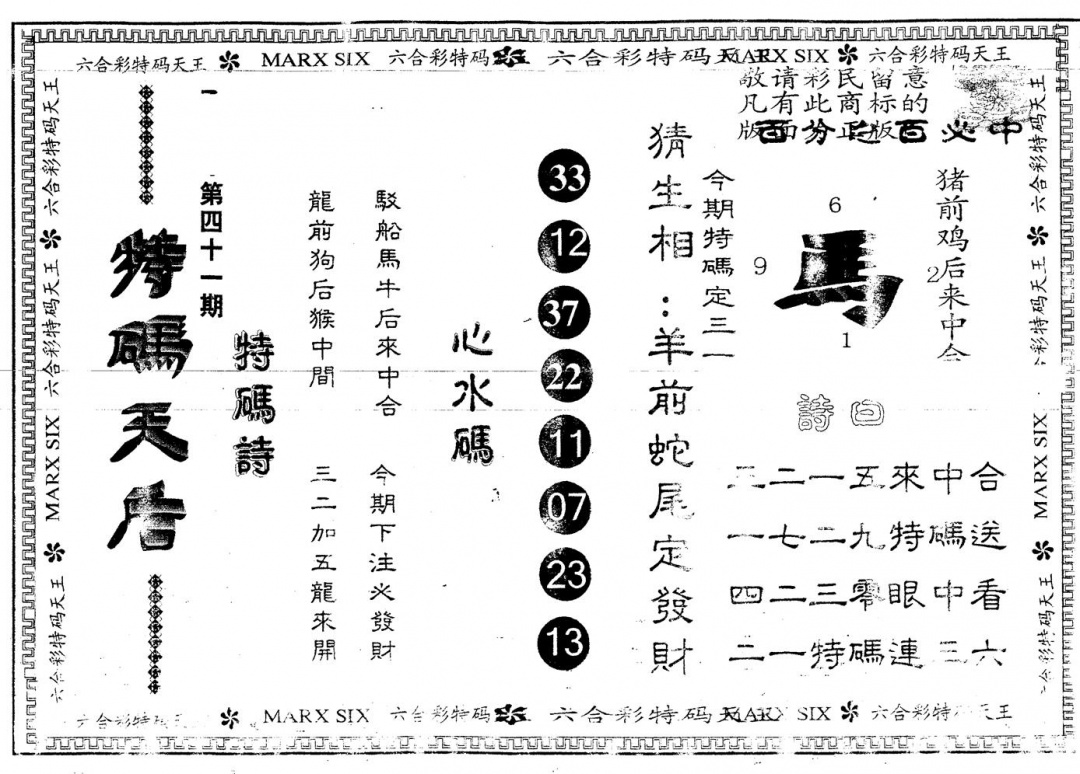 六合彩特码天王 MARX SIX 六合彩特码 六合彩特码天 MARX SIX 六合彩特码天王
敬请彩民留意
凡有此商标的
版面为正版
百分之百必中
猪前鸡后来中合
6
9
馬
2
1
今期特碼定三一
猜生相：羊前蛇尾定發財
33
12
37
22
11
07
23
13
心水碼
駁船馬牛后來中合 今期下注必發財
龍前狗后猴中間 三二加五龍來開
特碼詩
一
第四十一期
特碼天后
詩曰
三二一五來中合
一七二九特碼送
四二三零眼中看
二一特碼連三六
六合彩特码天王 MARX SIX 六合彩特码天王 六合彩特码天王
六合彩特码天王 六合彩特码天王 MARX SIX 六合彩特码天王
六合彩特码天王 MARX SIX 六合彩特码 六合彩特码天 MARX SIX 六合彩特码天王